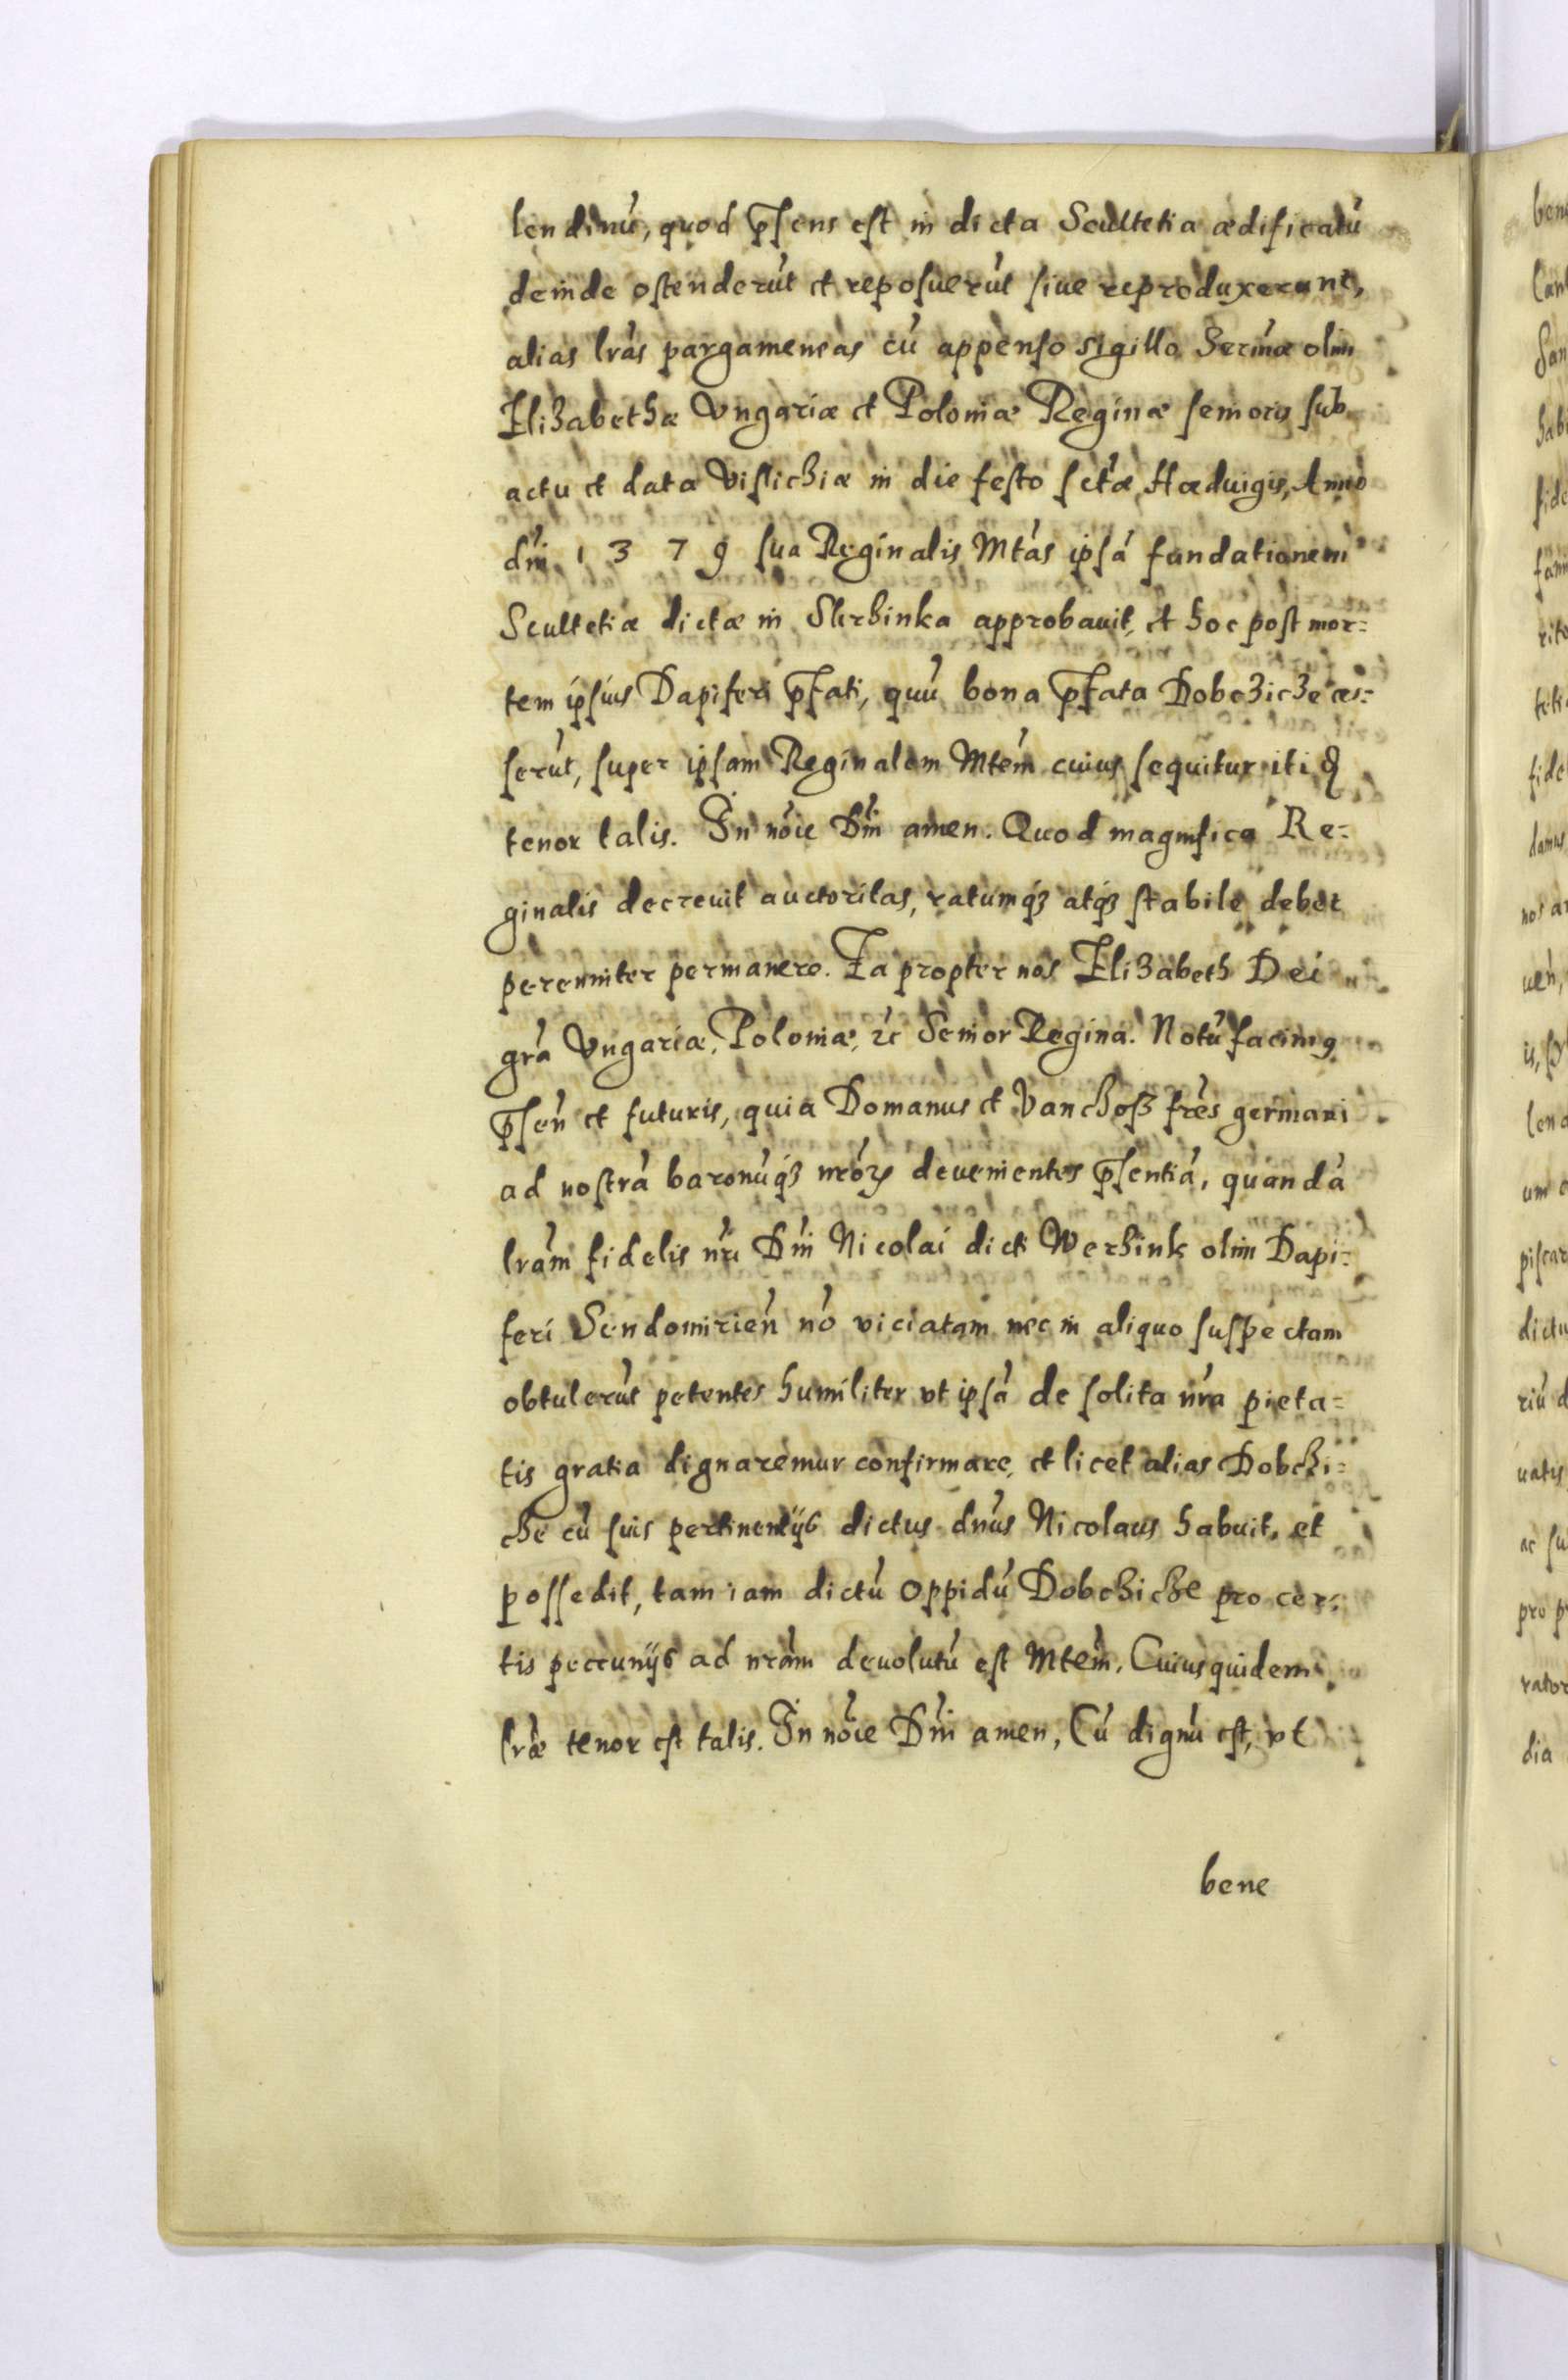 lendinú, quod p̄sens est in dicta Scultetia ædificatú
deinde ostenderút et reposuerút siue reproduxerunt,
alias lrás pargameneas cú appenso sigillo Serinæ olim
Elizabethæ Vngariæ et Poloniæ Reginæ senioris sub
actu et data Vislichiæ in die festo sctæ Hæduigis, Anno
dni 1379 sua Reginalis Mtás ipsá fundationem
Scultetiæ dictæ in Skrhinka approbauit, et hoc post mor=
tem ipsius Dapiferi p̄fati, quú bona p̄fata Dobczicze ces=
serút, super ipsam Reginalem Mtém cuius sequitur iti q
tenor talis. In nóie Dni amen. Quod magnifica Re=
ginalis decreuit auctoritas, ratumq́з atq́з stabile debet
perenniter permanere. Ea propter nos Elizabeth Dei
grá Vngariæ, Poloniæ, ꝛc Senior Regina. Notú facimꝰ
p̄sen et futuris, quia Domanus et Vanchoß frés germani
ad nostrá baronúq́з nróꝝ deuenientes p̄sentiá, quandá
lrám fidelis nri Dni Nicolai dicti Werhink olim Dapi=
feri Sendomirień nó viciatam nec in aliquo suspectam
obtulerút petentes humiliter vt ipsá de solita nrá pieta=
tis gratia dignaremur confirmare, et licet alias Dobchi=
che cú suis pertinentijs dictus dnus Nicolaus habuit, et
possedit, tam iam dictú oppidú Dobchiche pro cer=
tis peccunijs ad nrám deuolutú est Mtém, Cuiusquidem
lræ tenor est talis. In nóie Dni amen, Cú dignú est, vt
bene